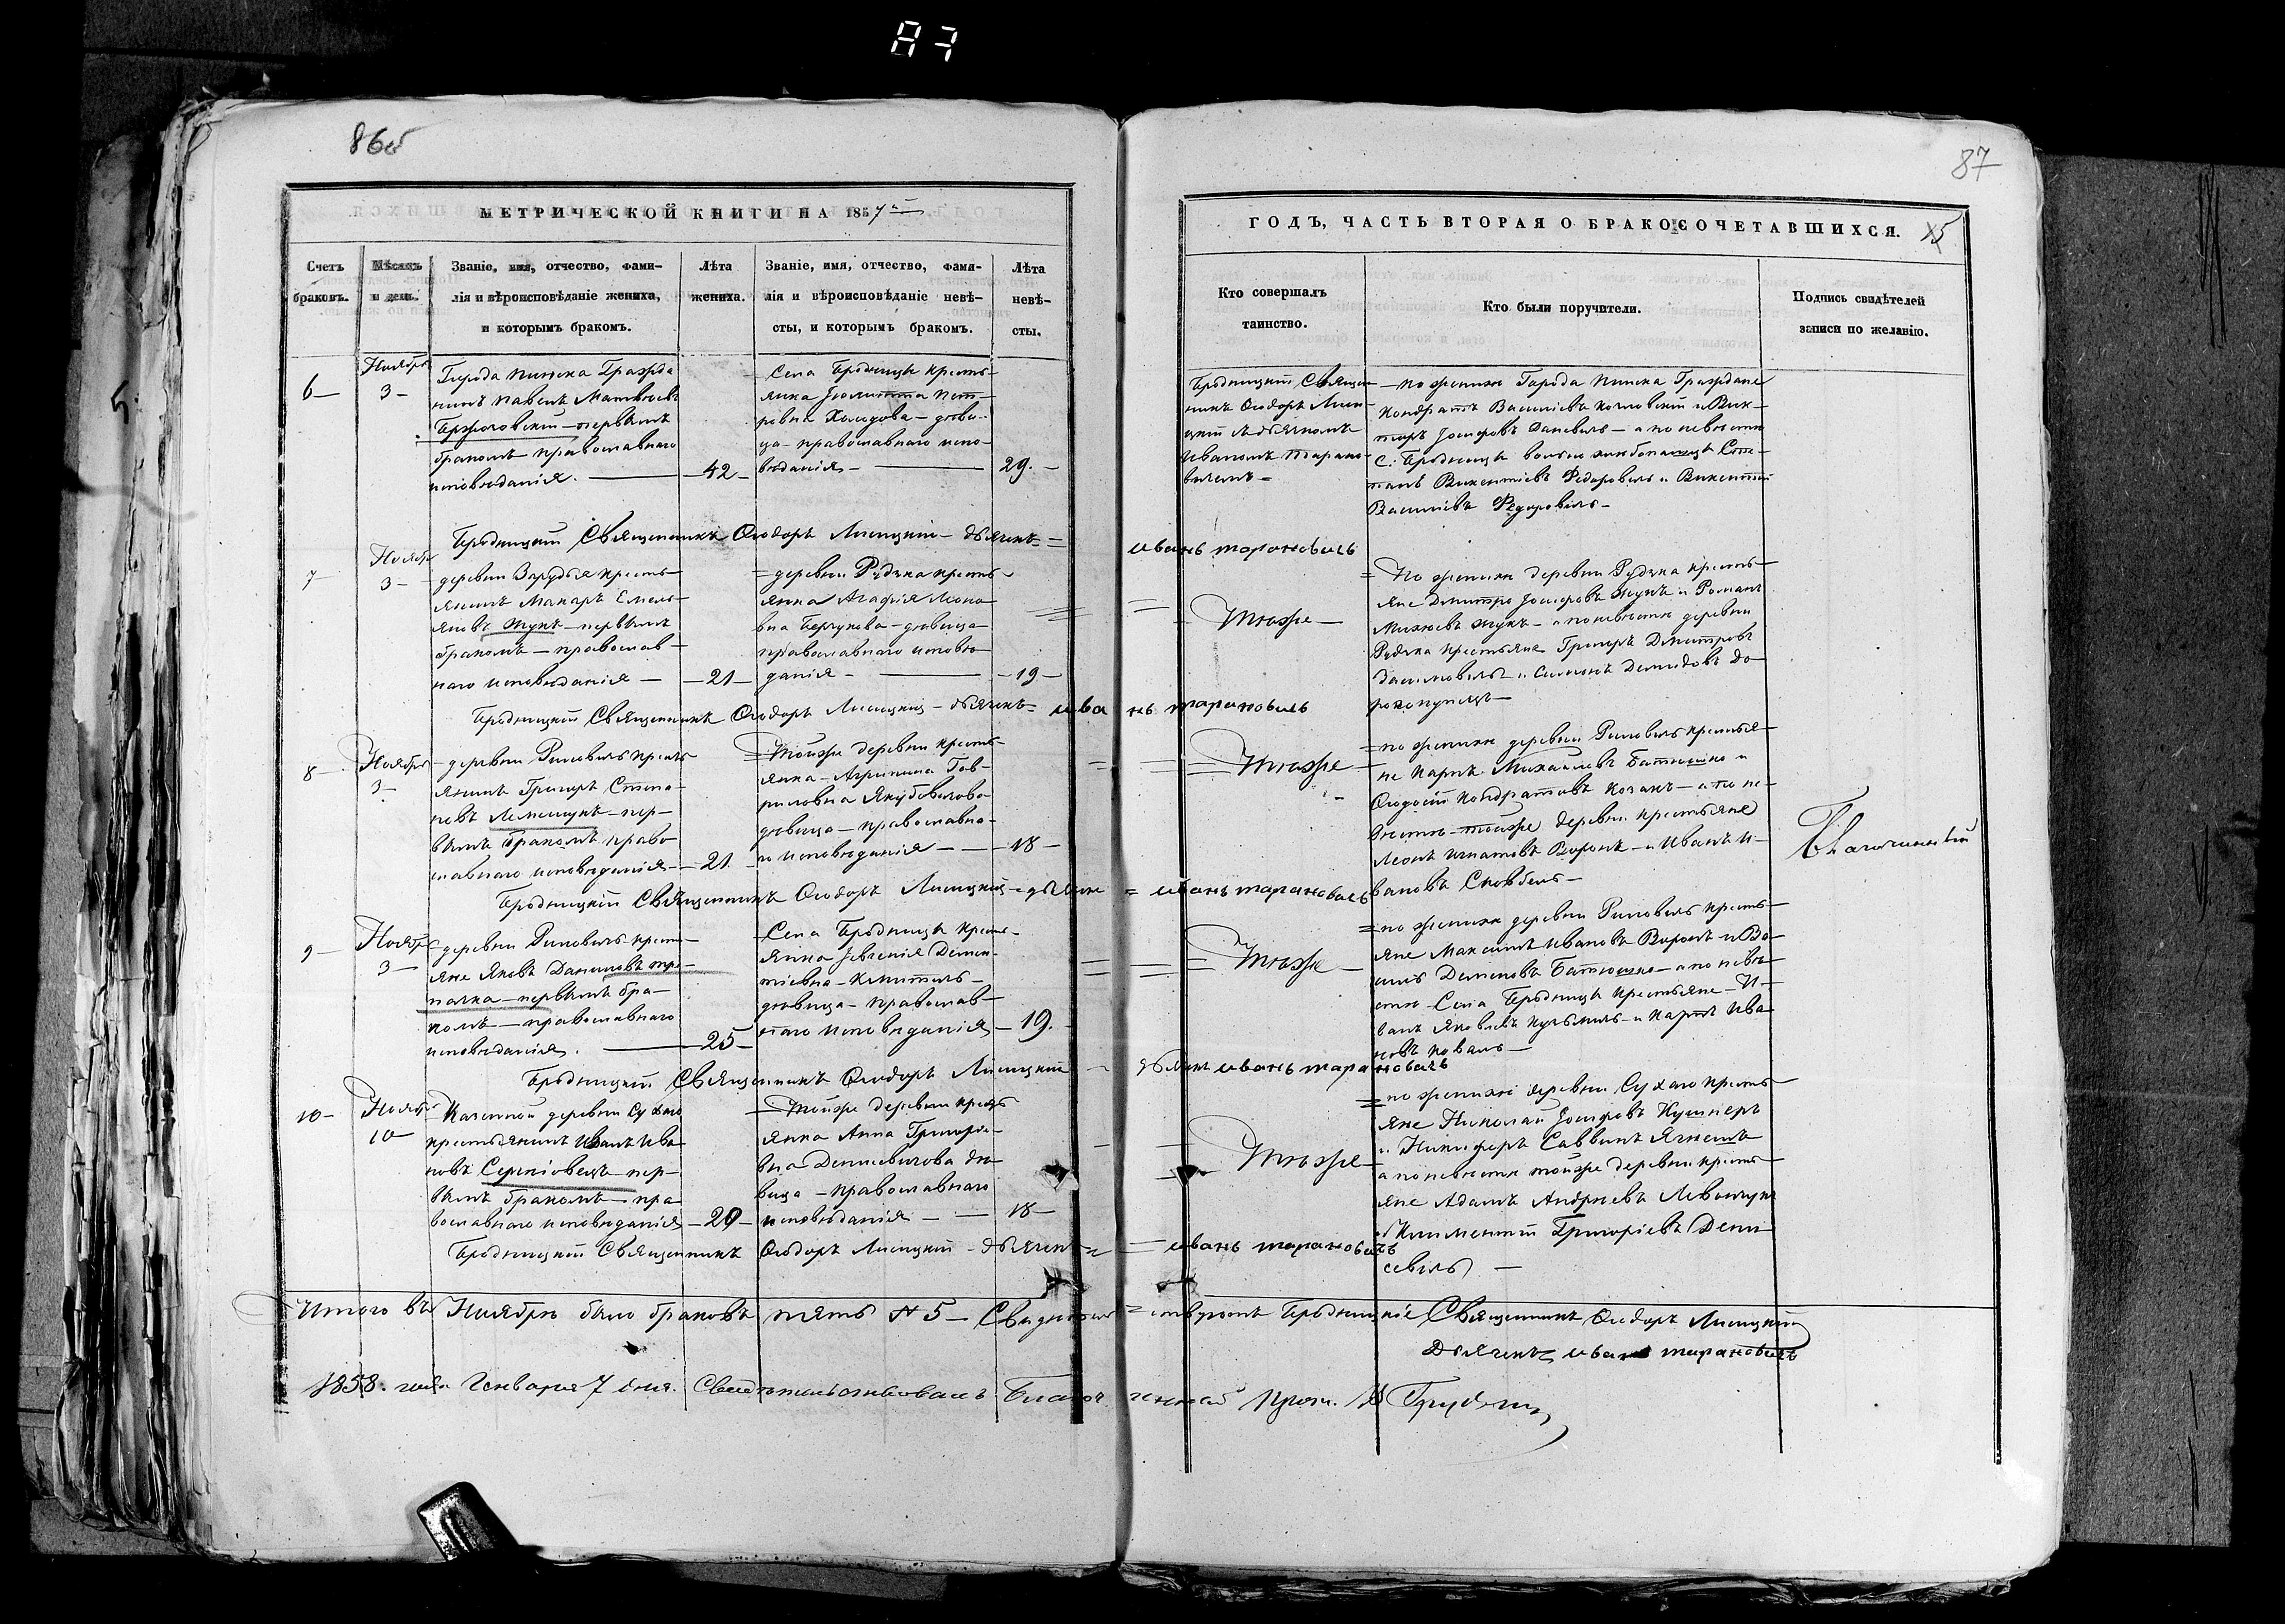 87
86об
87
МЕТРИЧЕСКОЙ КНИГИ НА 1857й
ГОДЪ, ЧАСТЬ ВТОРАЯ О БРАКОСОЧЕТАВШИХСЯ.
Счетъ браковъ.
Мѣсяцъ и день.
Званіе, имя, отчество, фами-
лія и вѣроисповѣданіе жениха,
и которымъ бракомъ.
Лѣта
жениха.
Званіе, имя, отчество, фами-
лія и вѣроисповѣданіе невѣ-
сты, и которымъ бракомъ.
Лѣта
невѣ-
сты.
Кто совершалъ
таинство.
Кто были поручители.
Подпись свидѣтелей
записи по желанію.
6
Ноября
3
Города Пинска Гражда
нинъ Павелъ Матвѣевъ
первымъ
бракомъ православнаго
исповѣданія.
42
Села Бродницы кресть
янка Петр
ровна Холодова – дѣви
ца – православнаго испо
вѣданія
29.
Бродницкій Священ
никъ Ѳеодоръ Лисиц
кій съ дьячкомъ
Иваномъ Тарано
вичемъ
по женихѣ Города Пинска Граждане
Кондратъ Василіевъ и Вик
торъ Іосифовъ – а по невѣстѣ
С. Бродницы Сте
панъ Викентіевъ Федоровичъ и Викентій
Василіевъ Федоровичъ
Бродницкій Священникъ Ѳеодоръ Лисицкій – дьячекъ = иванъ тарановичъ
7
Ноября
3
деревни Зарудья кресть
янинъ Макаръ Емель
яновъ Жукъ – первымъ
бракомъ – православ
наго исповѣданія
21
деревни Рудка кресть
янка Агафія Леоно
вна – дѣвица
православнаго исповѣ
данія
19
Тѣже
По женихѣ деревни Рудка кресть
яне Дмитро Іосифовъ Жукъ и Романъ
Михѣевъ Жукъ – а по невѣстѣ деревни
Рудка крестьяне Григоръ Дмитровъ
и Симонъ Демидовъ До
Бродницкій Священникъ Ѳеодоръ Лисицкій – дьячекъ иванъ тарановичъ
8
Ноября
3
деревни кресть
янинъ Григоръ Степа
новъ пер
вымъ бракомъ право
славнаго исповѣданія
21
Тойже деревни кресть
янка – Агрипина Гав
риловна Якубовичова
дѣвица – православна
го исповѣданія
18
Тѣже
по женихѣ деревни крестья
не Карпъ Михаилевъ Батюшко и
Ѳеодосій Кондратовъ Козакъ – а по не
вѣстѣ – тойже деревни крестьяне
Леонъ Игнатовъ Воронъ – и Иванъ И
вановъ
Благочинный
Бродницкій Священникъ Ѳеодоръ Лисицкій – дьячекъ = иванъ тарановичъ
9
Ноября
3
деревни кресть
яне Яковъ Даниловъ
первымъ бра
комъ – православнаго
исповѣданія.
25
Села Бродницы кресть
янка Іевгенія Демен
тіевна
дѣвица – православ
наго исповѣданія
19.
Тѣже
по женихѣ деревни кресть
яне Максимъ Ивановъ Воронъ и Ва
силь Батюшко – а по невѣ
стѣ Села Бродницы крестьяне – И
ванъ Яковлевъ и Карпъ Ива
новъ Коваль
Бродницкій Священникъ Ѳеодоръ Лисицкій – дьячекъ иванъ тарановичъ
10
Ноября
10
Казенной деревни Сухаго
крестьянинъ Иванъ Ива
новъ пер
вымъ бракомъ – пра
вославнаго исповѣданія
20
Тойже деревни кресть
янка Анна Григорie
вна Денисевичова дѣ
вица – православнаго
исповѣданія
18
Тѣже
по женихѣ деревни Сухаго кресть
яне Николай Іосифовъ Кушнеръ
и Никифоръ Саввинъ
а по невѣстѣ тойже деревни кресть
яне Адамъ Андреевъ Левончукъ
и Климентій Григоріевъ Дени
севичъ
Бродницкій Священникъ Ѳеодоръ Лисицкій – дьячекъ = иванъ тарановичъ
Итого въ Ноябрѣ было браковъ пять № 5 – Свидѣтельствуютъ Бродницкіе Священникъ Ѳеодоръ Лисицкій
Дьячекъ иванъ тарановичъ
1858. года Генваря 7 дня. Свидѣтельствовалъ Благочинный